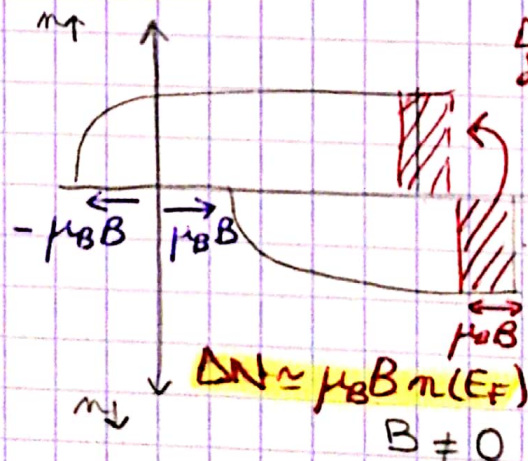 n↑
-μ_B B
μ_B B
μ_B B
ΔN ≃ μ_B B n(E_F)
n↓
B ≠ 0